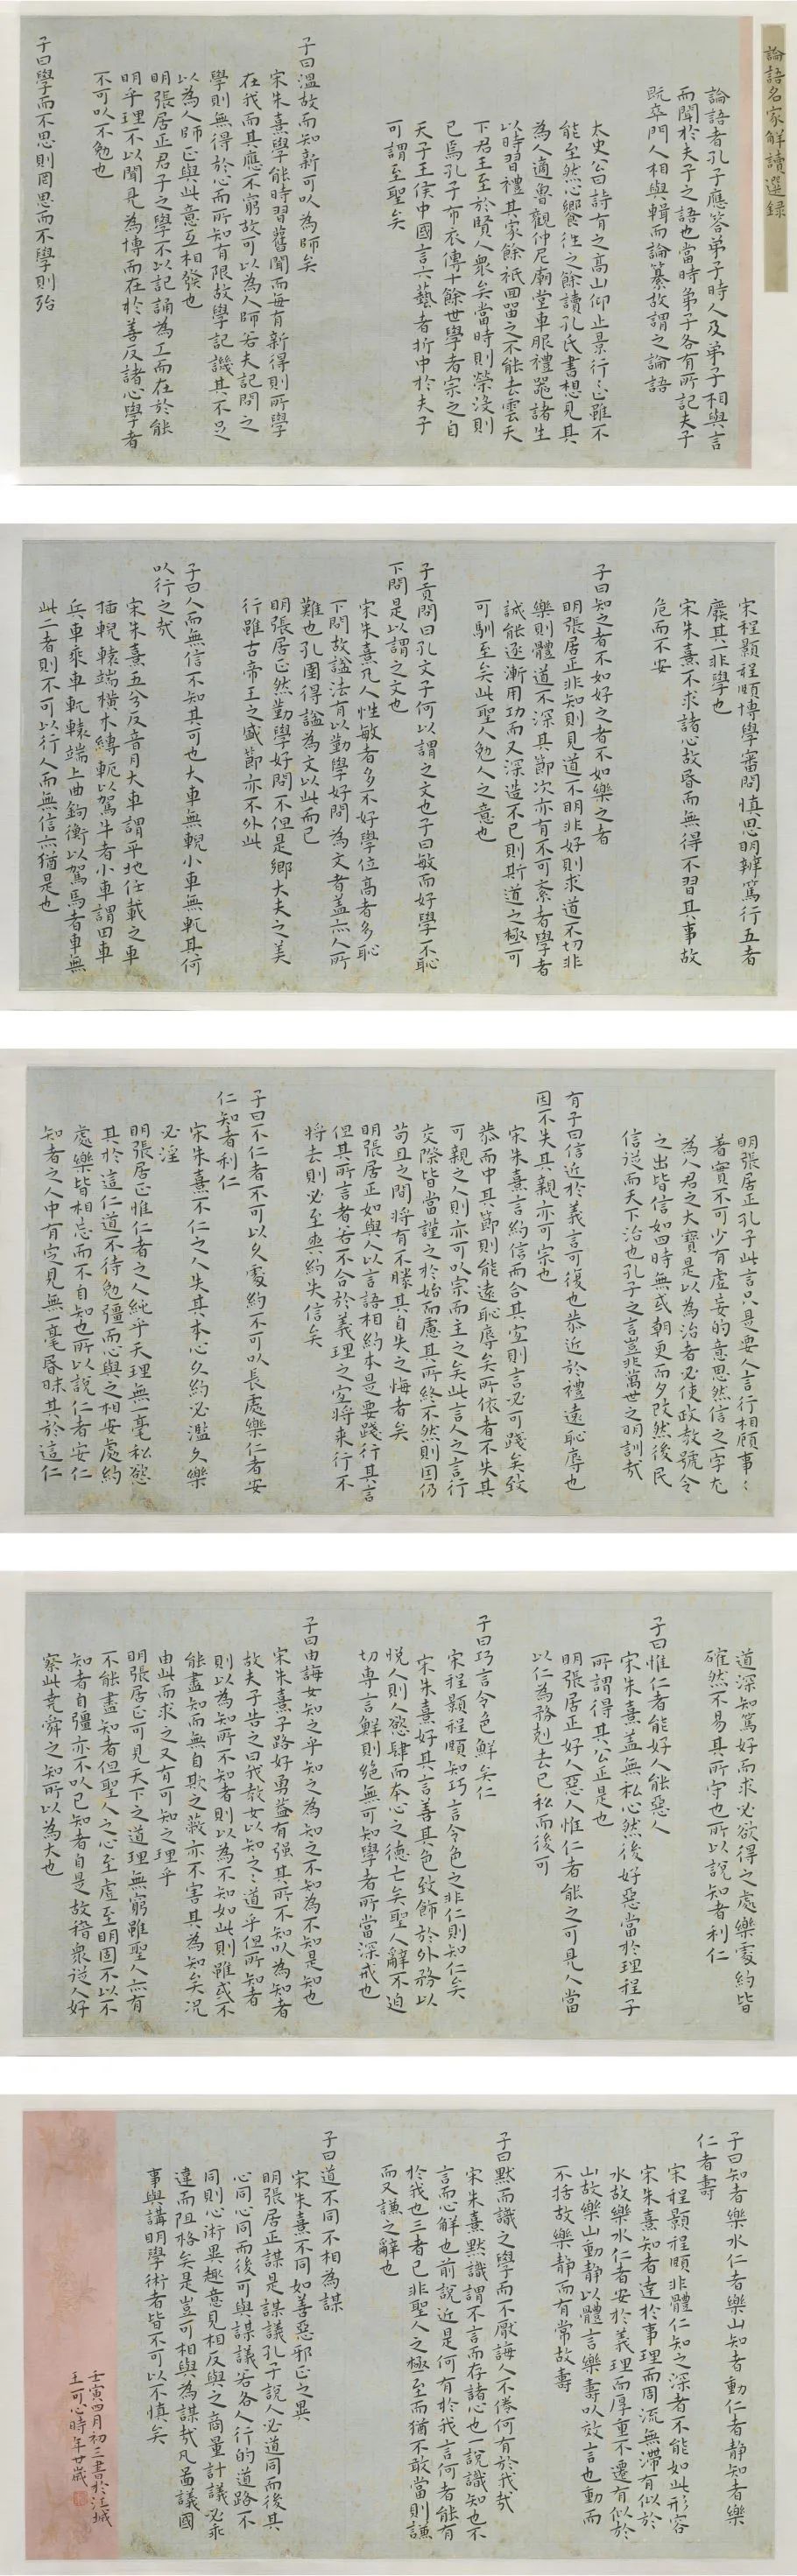 論語名家解讀選錄
論語者孔子應答弟子時人及弟子相與言
而聞於夫子之語也當時弟子各有所記夫子
既卒門人相與輯而論纂故謂之論語
太史公曰詩有之高山仰止景行行止雖不
能至然心嚮往之余讀孔氏書想見其
為人適魯觀仲尼廟堂車服禮器諸生
以時習禮其家余祗回留之不能去雲天
下君王至於賢人衆矣當時則榮沒則
已焉孔子布衣傳十餘世學者宗之自
天子王侯中國言六藝者折中於夫子
可謂至聖矣
子曰溫故而知新可以為師矣
宋朱熹學能時習舊聞而每有新得則所學
在我而其應不窮故可以為人師若夫記問之
學則無得於心而所知有限故學記譏其不足
以為人師正與此意互相發也
明張居正君子之學不以記誦為工而在於能
明乎理不以聞見為博而在於善反諸心學者
不可以不勉也
子曰學而不思則罔思而不學則殆
宋程顥程頤博學審問慎思明辨篤行五者
廢其一非學也
宋朱熹不求諸心故昏而無得不習其事故
危而不安
子曰知之者不如好之者不如樂之者
明張居正非知則見道不明非好則求道不切非
樂則體道不深其節次亦有不可紊者學者
誠能逐漸用功而又深造不已則斯道之極可
可馴至矣此聖人勉人之意也
子貢問曰孔文子何以謂之文也子曰敏而好學不恥
下問是以謂之文也
宋朱熹凡人性敏者多不好學位高者多恥
下問故謚法有以勤學好問為文者蓋亦人所
難也孔圉得謚為文以此而已
明張居正然勤學好問不但是鄉大夫之美
行雖古帝王之盛節亦不外此
子曰人而無信不知其可也大車無輗小車無軏其何
以行之哉
宋朱熹五兮反音月大車謂平地任載之車
插輗轅端橫木縛軛以駕牛者小車謂田車
兵車乘車軏轅端上曲鉤衡以駕馬者車無
此二者則不可以行人而無信亦猶是也
明張居正孔子此言只是要人言行相顧事〻
著實不可少有虛妄的意思然信之一字尤
為人君之大寶是以為治者必使政教號令
之出皆信如四時無或朝更而夕改然後民
信從而天下治也孔子之言豈非萬世之明訓哉
有子曰信近於義言可復也恭近於禮遠恥辱也
因不失其親亦可宗也
宋朱熹言約信而合其宜則言必可踐矣致
恭而中其節則能遠恥辱矣所依者不失其
可親之人則亦可以宗而主之矣此言人之言行
交際皆當謹之於始而慮其所終不然則因仍
苟且之間將有不勝其自失之悔者矣
明張居正如與人以言語相約本是要踐行其言
但其所言者若不合於義理之宜將來行不
將去則必至爽約失信矣
子曰不仁者不可以久處約不可以長處樂仁者安
仁知者利仁
宋朱熹不仁之人失其本心久約必濫久樂
必淫
明張居正惟仁者之人純乎天理無一毫私慾
其於這仁道不待勉彊而心與之相安處約
處樂皆相忘而不自知也所以說仁者安仁
知者之人中有定見無一毫昏昧其於這仁
道深知篤好而求必欲得之處樂處約皆
確然不易其所守也所以說知者利仁
子曰惟仁者能好人能惡人
宋朱熹蓋無私心然後好惡當於理程子
所謂得其公正是也
明張居正好人惡人惟仁者能之可見人當
以仁為務剋去己私而後可
子曰巧言令色鮮矣仁
宋程顥程頤知巧言令色之非仁則知仁矣
宋朱熹好其言善其色致飾於外務以
悅人則人慾肆而本心之德亡矣聖人辭不迫
切專言鮮則絕無可知學者所當深戒也
子曰由誨女知之乎知之為知之不知為不知是知也
宋朱熹子路好勇蓋有强其所不知以為知者
故夫子告之曰我教女以知之〻道乎但所知者
則以為知所不知者則以為不知如此則雖或不
能盡知而無自欺之蔽亦不害其為知矣況
由此而求之又有可知之理乎
明張居正可見天下之道理無窮雖聖人亦有
不能盡知者但聖人之心至虛至明固不以不
知者自彊亦不以已知者自是故稽衆從人好
察此堯舜之知所以為大也
子曰知者樂水仁者樂山知者動仁者靜知者樂
仁者壽
宋程顥程頤非體仁知之深者不能如此形容
宋朱熹知者達於事理而周流無滯有似於
水故樂水仁者安於義理而厚重不遷有似於
山故樂山動靜以體言樂壽以效言也動而
不括故樂靜而有常故壽
子曰默而識之學而不厭誨人不倦何有於我哉
宋朱熹默識謂不言而存諸心也一說識知也不
言而心解也前說近是何有於我言何者能有
於我也三者已非聖人之極至而猶不敢當則謙
而又謙之辭也
子曰道不同不相為謀
宋朱熹不同如善惡邪正之異
明張居正謀是謀議孔子說人必道同而後其
心同心同而後可與謀議若各人行的道路不
同則心術異趣意見相反與之商量計議必乖
違而阻格矣是豈可相與為謀哉凡啚議國
事與講明學術者皆不可以不慎矣
壬寅四月初三書於江城
王可心時年廿歲